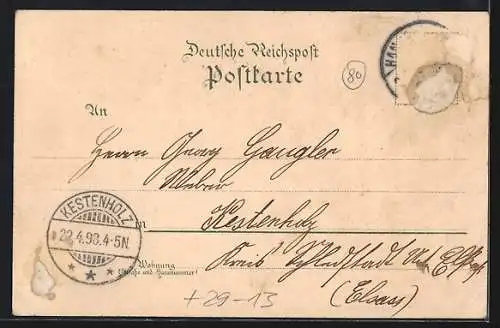 Deutsche Reichspost
Postkarte
80
HAN
An
Herrn Georg Gangler
Weber
KESTENHOLZ
22.4.98.4-5N.
in Kestenholz
Kreis Schlettstadt
Wohnung
(Straße und Hausnummer)
(Elsass)
+29-13